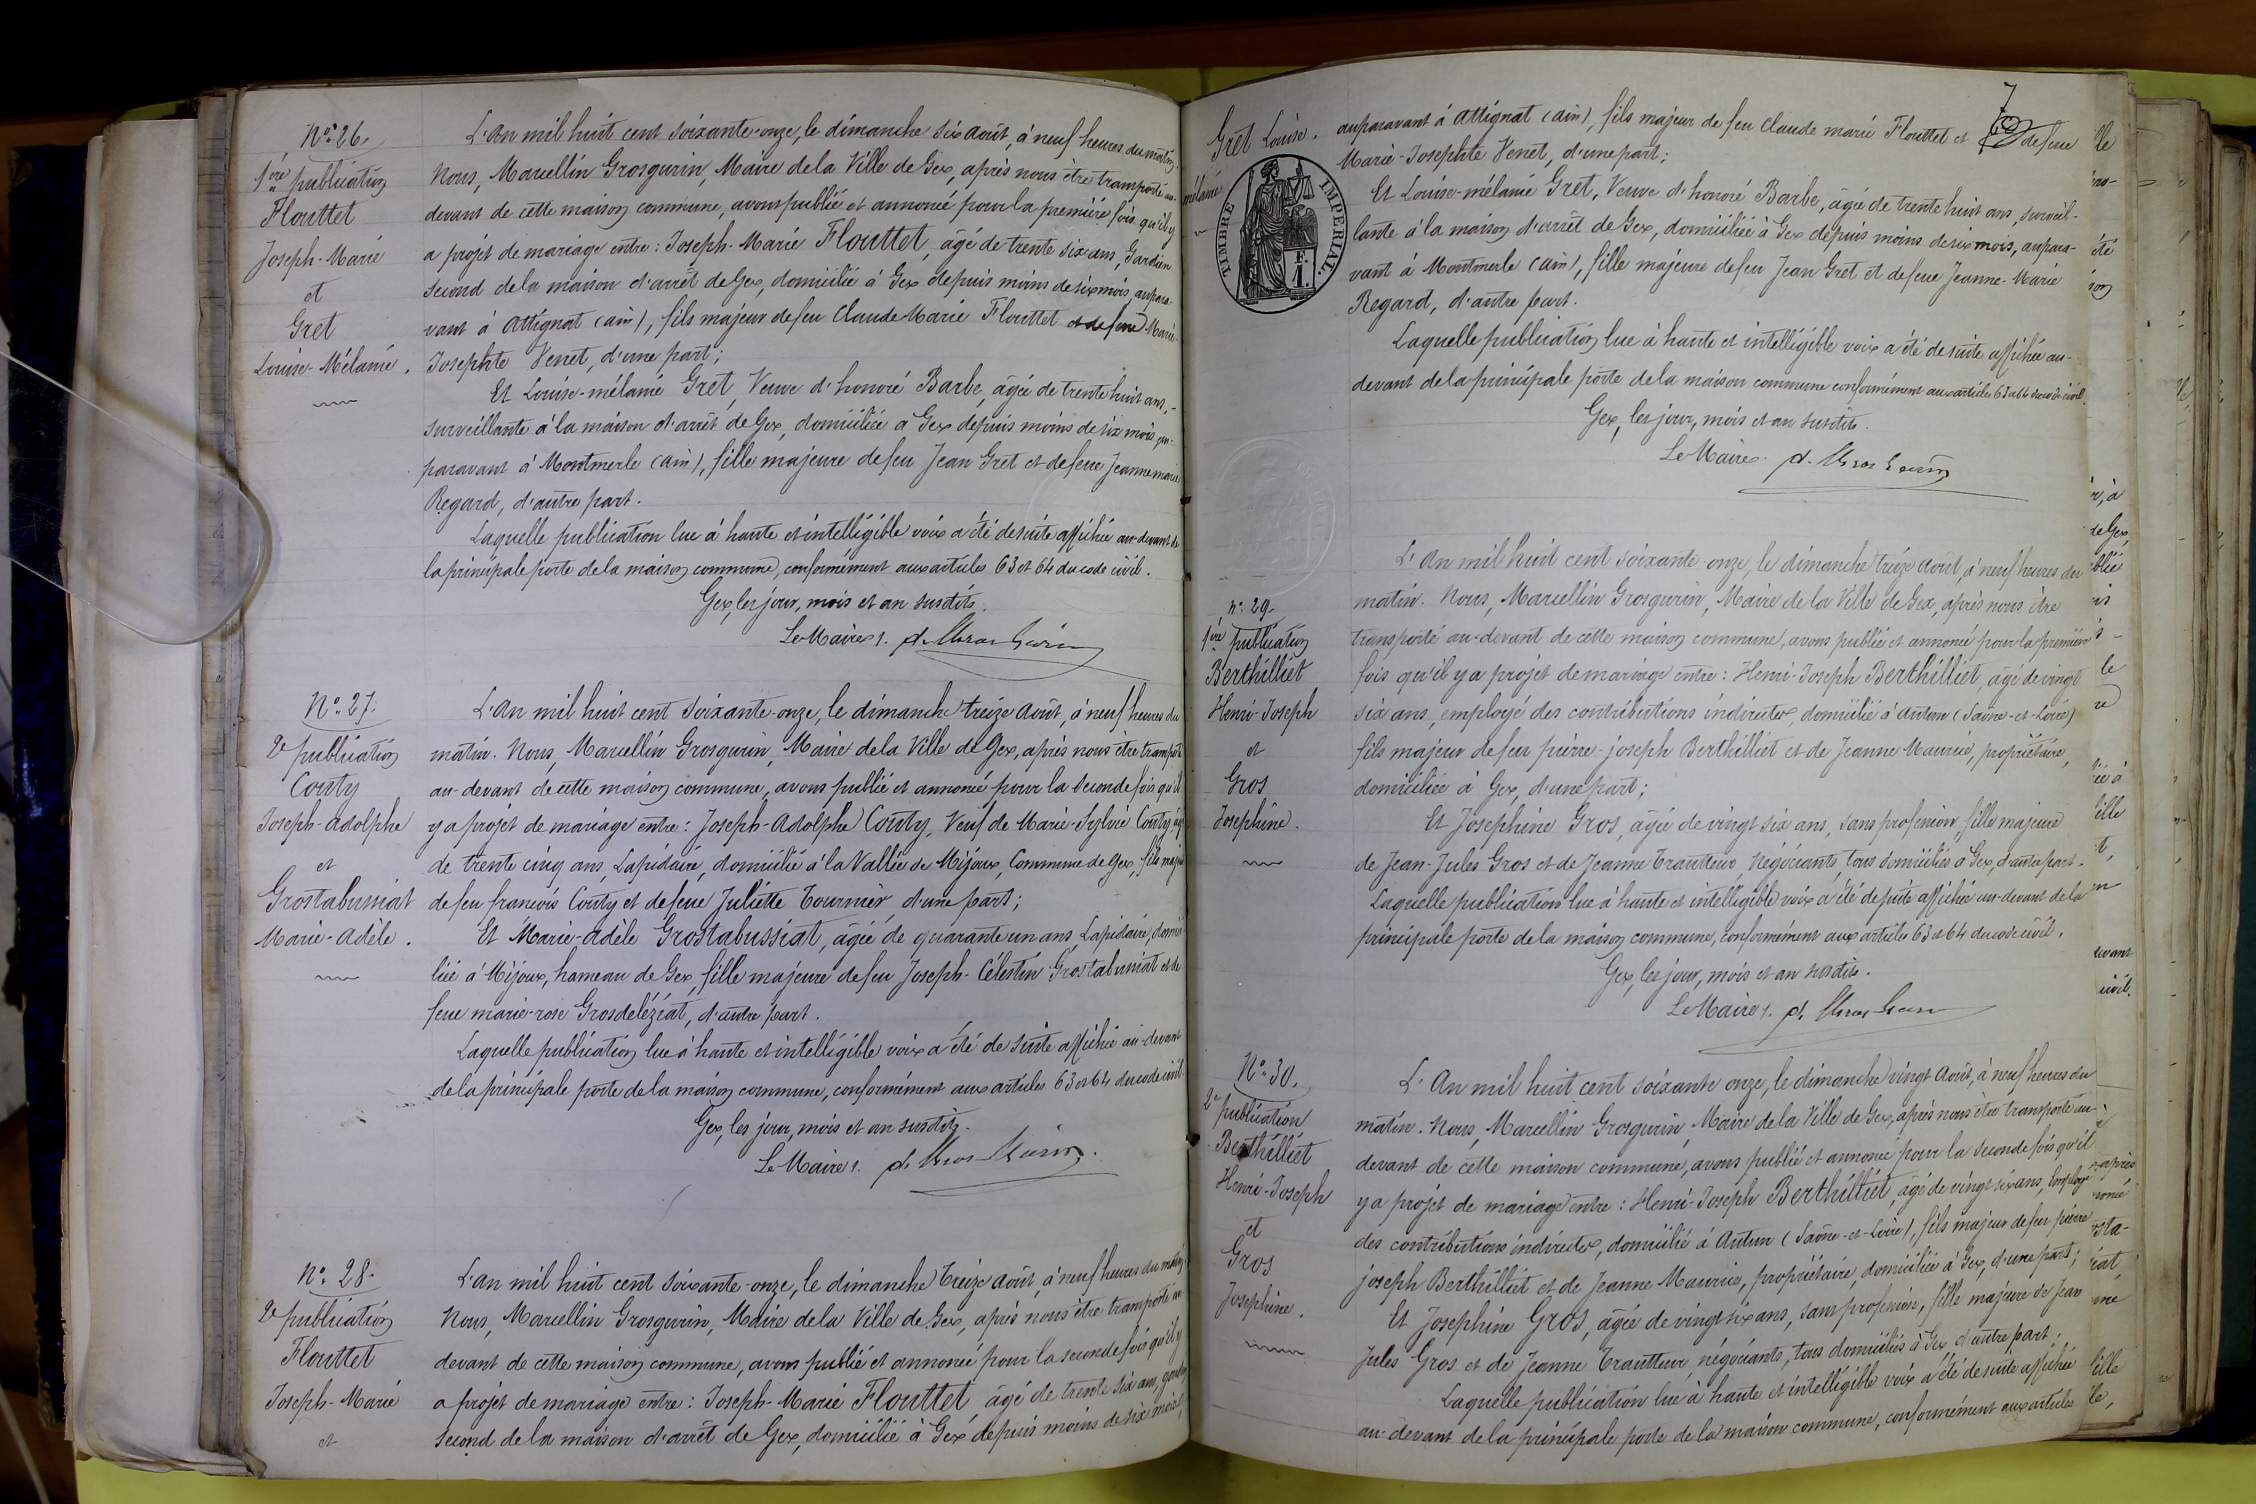 Nº 26.
1ère publication
Flouttet
Joseph-Marie
et
Gret
Louise-Mélanie.
L'an mil huit cent soixante-onze, le dimanche six août, à neuf heures du matin.
Nous, Marcellin Grosgurin, Maire de la Ville de Gex, après nous être transporté au-
devant de cette maison commune, avons publié et annoncé pour la première fois qu'il y
a projet de mariage entre : Joseph-Marie Flouttet, âgé de trente six ans, Gardien
second de la maison d'arrêt de Gex, domicilié à Gex depuis moins de six mois, aupara-
vant à Attignat (ain), fils majeur de feu Claude Marie Flouttet et de feue Marie-
Josephte Venet, d'une part ;
Et Louise-mélanie Gret, Veuve d'honoré Barbe, âgée de trente huit ans,
surveillante à la maison d'arrêt de Gex, domiciliée à Gex depuis moins de six mois, au-
paravant à Montmerle (ain), fille majeure de feu Jean Gret et de feue Jeanne marie
Regard, d'autre part.
Laquelle publication lue à haute et intelligible voix a été de suite affichée au-devant de
la principale porte de la maison commune, conformément aux articles 63 et 64 du code civil.
Gex, les jour, mois et an susdits.
Le Maire,
Nº 27.
2e publication
Couty
Joseph-adolphe
et
Grostabussiat
Marie-Adèle.
L'an mil huit cent soixante-onze, le dimanche treize Août, à neuf heures du
matin. Nous, Marcellin Grosgurin, Maire de la Ville de Gex, après nous être transporté
au-devant de cette maison commune, avons publié et annoncé pour la seconde fois qu'il
y a projet de mariage entre : Joseph-Adolphe Couty, Veuf de Marie-Sylvie Couty, âgé
de trente cinq ans, Lapidaire, domicilié à la Vallée de Mijoux, Commune de Gex, fils majeur
de feu françois Couty et de feue Juliette Tournier d'une part ;
Et Marie-adèle Grostabussiat, âgée de quarante un ans, Lapidaire, domici-
liée à Mijoux, hameau de Gex, fille majeure de feu Joseph-Célestin Grostabussiat et de
feue marie-rose Grosdelézéat, d'autre part.
Laquelle publication lue à haute et intelligible voix a été de suite affichée au-devant
de la principale porte de la maison commune, conformément aux articles 63 et 64 du code civil.
Gex, les jour, mois et an susdits.
Le Maire,
Nº 28.
2e publication
Flouttet
Joseph-Marie
et
L'an mil huit cent soixante-onze, le dimanche treize Août, à neuf heures du matin
Nous, Marcellin Grosgurin, Maire de la Ville de Gex, après nous être transporté au-
devant de cette maison commune, avons publié et annoncé pour la seconde fois qu'il y
a projet de mariage entre : Joseph-Marie Flouttet âgé de trente six ans, gardien
second de la maison d'arrêt de Gex, domicilié à Gex depuis moins de six mois,
7
Gret Louise.
mélanie
TIMBRE IMPERIAL.
F.
1.
auparavant à Attignat (ain), fils majeur de feu Claude marie Flouttet et de feue
Marie-Josephte Venet, d'une part ;
Et Louise-mélanie Gret, Veuve d'honoré Barbe, âgée de trente huit ans, surveil-
lante à la maison d'arrêt de Gex, domiciliée à Gex depuis moins de six mois, aupara-
vant à Montmerle (ain), fille majeure de feu Jean Gret et de feue Jeanne-Marie
Regard, d'autre part.
Laquelle publication lue à haute et intelligible voix a été de suite affichée au-
devant de la principale porte de la maison commune conformément aux articles 63 et 64 du code civil.
Gex, les jour, mois et an susdits.
Le Maire.
nº 29.
1ère publication
Berthilliet
Henri-Joseph
et
Gros
Josephine.
L'An mil huit cent soixante-onze, le dimanche treize août, à neuf heures du
matin. Nous, Marcellin Grosgurin, Maire de la Ville de Gex, après nous être
transporté au-devant de cette maison commune, avons publié et annoncé pour la première
fois qu'il y a projet de mariage entre : Henri-Joseph Berthilliet, âgé de vingt
six ans, employé des contributions indirectes, domicilié à Autun (Saône-et-Loire)
fils majeur de feu pierre-joseph Berthilliet et de Jeanne Mauricie, propriétaire,
domiciliée à Gex, d'une part ;
Et Josephine Gros, âgée de vingt six ans, sans profession, fille majeure
de Jean-Jules Gros et de Jeanne Trautteur, négociants, tous domiciliés à Gex, d'autre part.
Laquelle publication lue à haute et intelligible voix a été de suite affichée au-devant de la
principale porte de la maison commune, conformément aux articles 63 et 64 du code civil.
Gex, les jour, mois et an susdits.
Le Maire,
Nº 30.
2e publication
Berthilliet
Henri-Joseph
et
Gros
Josephine.
L'An mil huit cent soixante onze, le dimanche vingt Août, à neuf heures du
matin. Nous, Marcellin Grosgurin, Maire de la Ville de Gex, après nous être transporté au-
devant de cette maison commune, avons publié et annoncé pour la seconde fois qu'il
y a projet de mariage entre : Henri-Joseph Berthilliet, âgé de vingt six ans, Employé
des contributions indirectes, domicilié à Autun (Saône-et-Loire), fils majeur de feu pierre
joseph Berthilliet et de Jeanne Mauricie, propriétaire, domiciliée à Gex, d'une part ;
Et Josephine Gros, âgée de vingt six ans, sans profession, fille majeure de Jean
Jules Gros et de Jeanne Trautteur, négociants, tous domiciliés à Gex, d'autre part.
Laquelle publication lue à haute et intelligible voix a été de suite affichée
au-devant de la principale porte de la maison commune, conformément aux articles